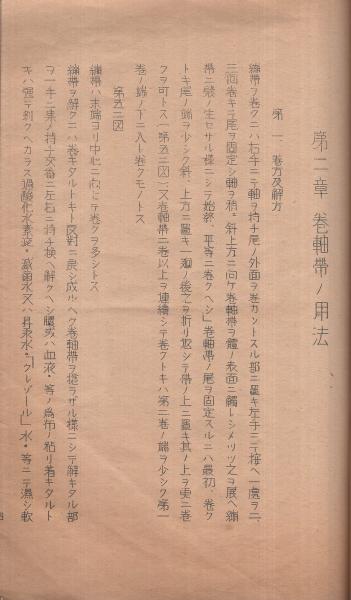 第二章 巻軸帯ノ用法
第一 巻方及解方
繃帯ヲ巻クニハ右手ニテ軸ヲ持チ尾ノ外面ヲ巻カントスル部ニ置キ左手ニテ押ヘ一處ヲ二、
三回巻キテ尾ヲ固定シ軸ヲ稍〻斜上方ニ向ケ巻軸帯ヲ體ノ表面ニ觸レシメツツ之ヲ展ヘ繃
帯ニ皺ノ生セサル様ニシテ始終、平等ニ巻クヘシ」巻軸帯ノ尾ヲ固定スルニハ最初、巻ク
トキ尾ノ端ヲ少シク斜、上方ニ置キ一廻ノ後之ヲ折リ返シテ帯ノ上ニ置キ其ノ上ヲ更ニ巻
クヲ可トス（第五二図）又巻軸帯二巻以上ヲ連續シテ巻クトキハ第二巻ノ端ヲ少シク第一
巻ノ端ノ下ニ入レ巻クモノトス
第五二図
繃帯ハ末端ヨリ中心ニ向ヒテ巻クヲ多シトス
繃帯ヲ解クニハ巻キタルトキト反對ニ戻シ成ルヘク巻軸帯ヲ捻ラサル様ニシテ解キタル部
ヲ一手ニ束ネ持チ交番ニ左右ニ持チ換ヘ解クヘシ膿或ハ血液・等ノ爲布ノ粘リ着キタルト
キハ強テ剥クヘカラス過酸化水素淀・食鹽水又ハ昇汞水・「クレゾール」水・等ニテ濕シ軟